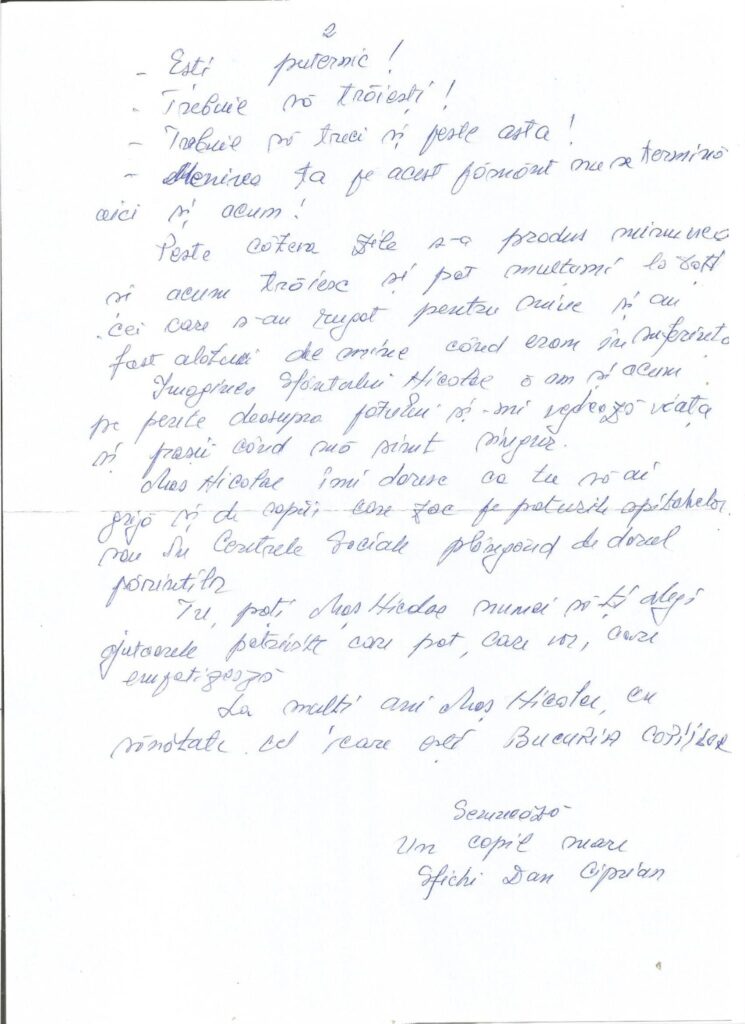 2
- Esti puternic!
- Trebuie să trăiești!
- Trebuie să treci și peste asta!
- Menirea ta pe acest pămînt nu se termină
aici și acum!
Peste câteva zile s-a produs minunea
și acum trăiesc și pot mulțumi la toți
cei care s-au rugat pentru mine și au
fost alături de mine când eram în suferință
Imaginea Sfântului Nicolae o am și acum
pe perete deasupra patului și-mi veghează viața
și pașii când mă simt singur.
Moș Nicolae îmi doresc ca tu să ai
grijă și de copiii care zac pe paturile spitalelor
sau în Centrele Sociale plângând de dorul
părinților
Tu, poți Moș Nicolae numai să-ți alegi
ajutoarele potrivite care pot, care vor, care
empatizează
La multi ani Moș Nicolae, cu
sănătate cel care ești BUCURIA COPIILOR
Semnează
Un copil mare
Sfichi Dan Ciprian